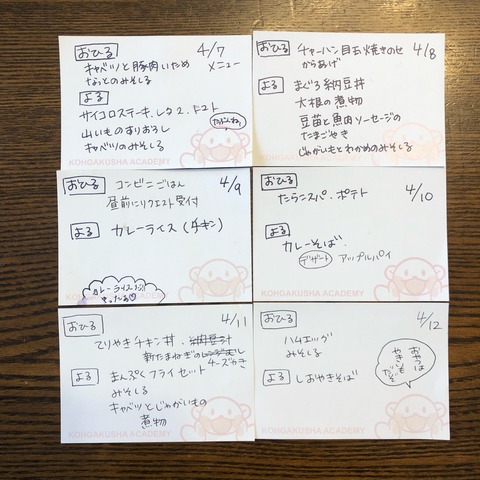 おひる 4/7
キャベツと豚肉いため メニュー
なっとのみそしる
よる
サイコロステーキ.レタス.トマト
山いものすりおろし
キャベツのみそしる
KOHGAKUSHA ACADEMY
おひる チャーハン目玉焼きのせ 4/8
からあげ
よる まぐろ納豆丼
大根の煮物
豆苗と魚肉ソーセージの
たまごやき
じゃがいもとわかめのみそしる
KOHGAKUSHA ACADEMY
おひる コンビニごはん 4/9
昼前にリクエスト受付
よる カレーライス(チキン)
カレーライス
おひる たらこスパ.ポテト 4/10
よる カレーそば.
デザート アップルパイ
KOHGAKUSHA ACADEMY
おひる 4/11
てりやきチキン丼.
新たまねぎの
チーズやき
よる まんぷくフライセット
みそしる
キャベツとじゃがいもの
煮物
KOHGAKUSHA ACADEMY
おひる 4/12
ハムエッグ
みそしる
よる しおやきそば
おやつは
やきいも
だぞ
KOHGAKUSHA ACADEMY